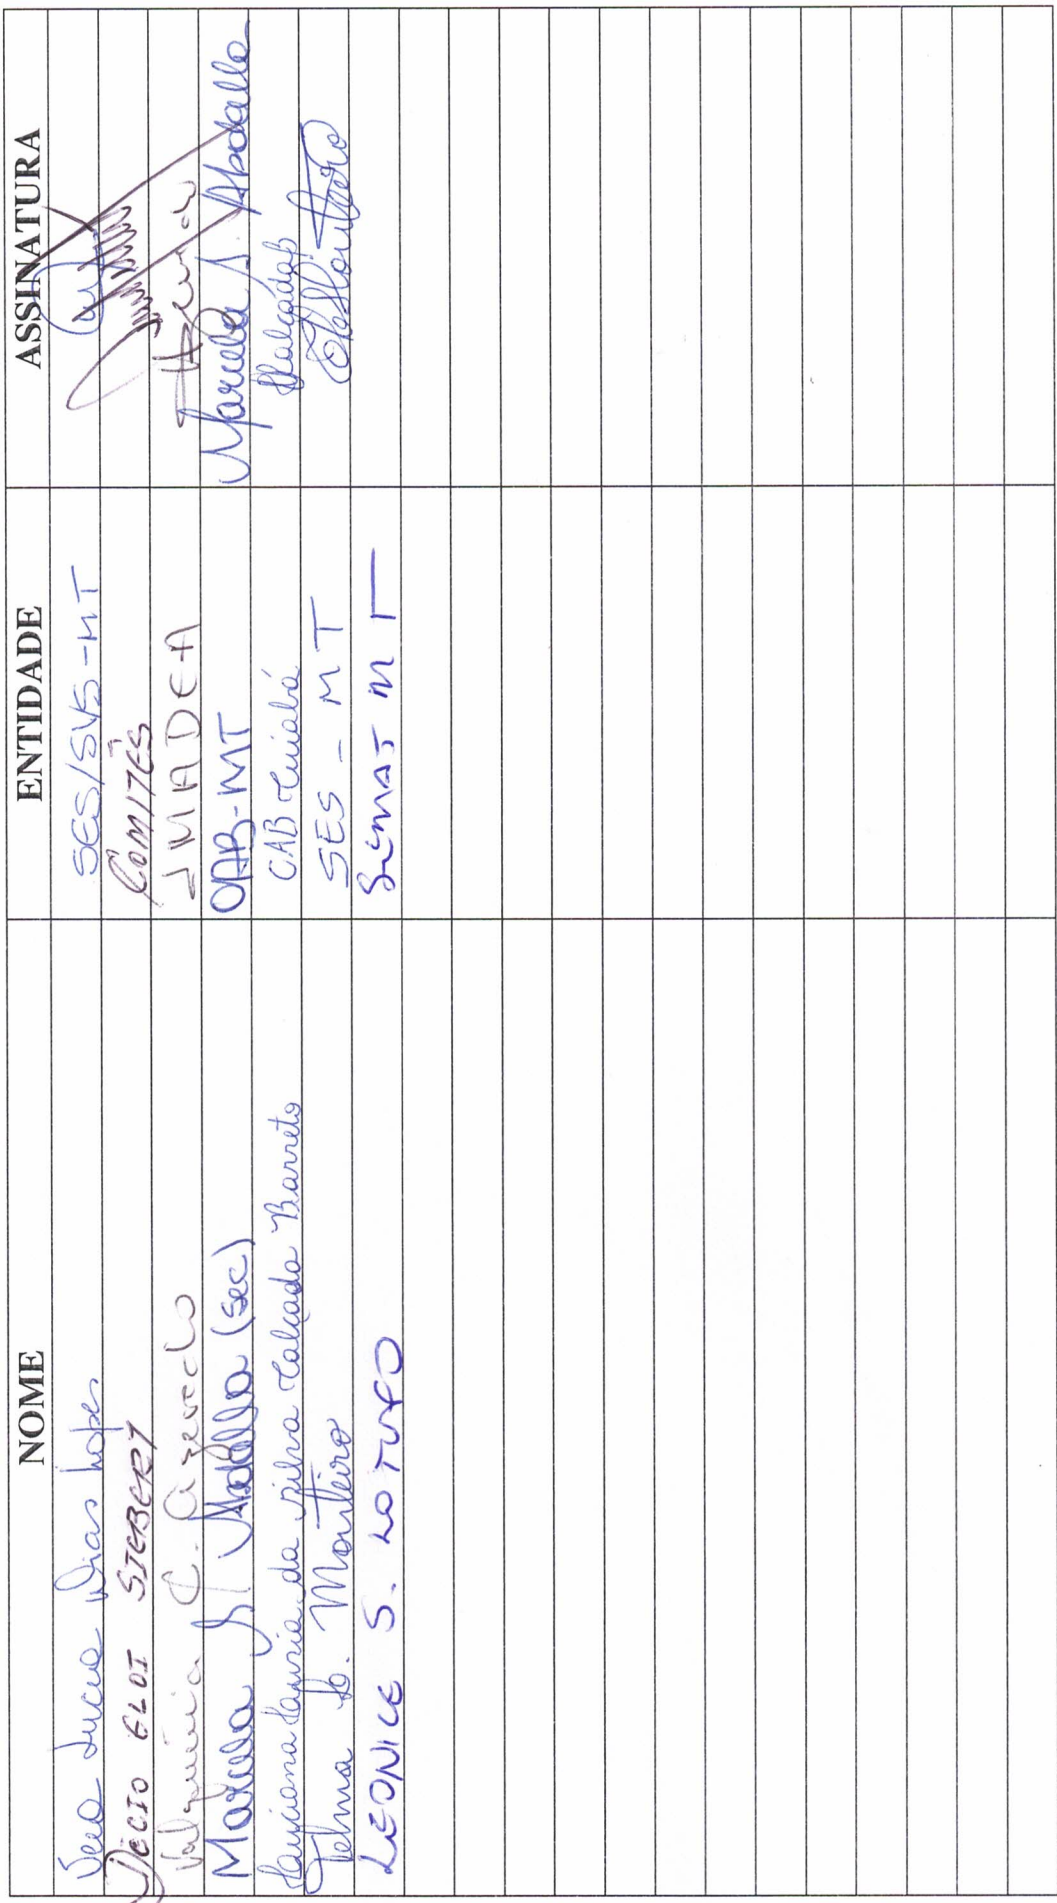 NOME ENTIDADE ASSINATURA
Vera Lucia Dias Lopes SES/SVS-MT
DÉCIO ELOI SIEBERT COMITÊS
Valquiria C. Azevedo Azevedo
Marcela S. Abdalla (sec) OAB-MT Marcela S. Abdalla
da Silva Calçada Barreto CAB Cuiabá
Telma Monteiro SES - MT Monteiro
LEONICE S. LOTUFO MT